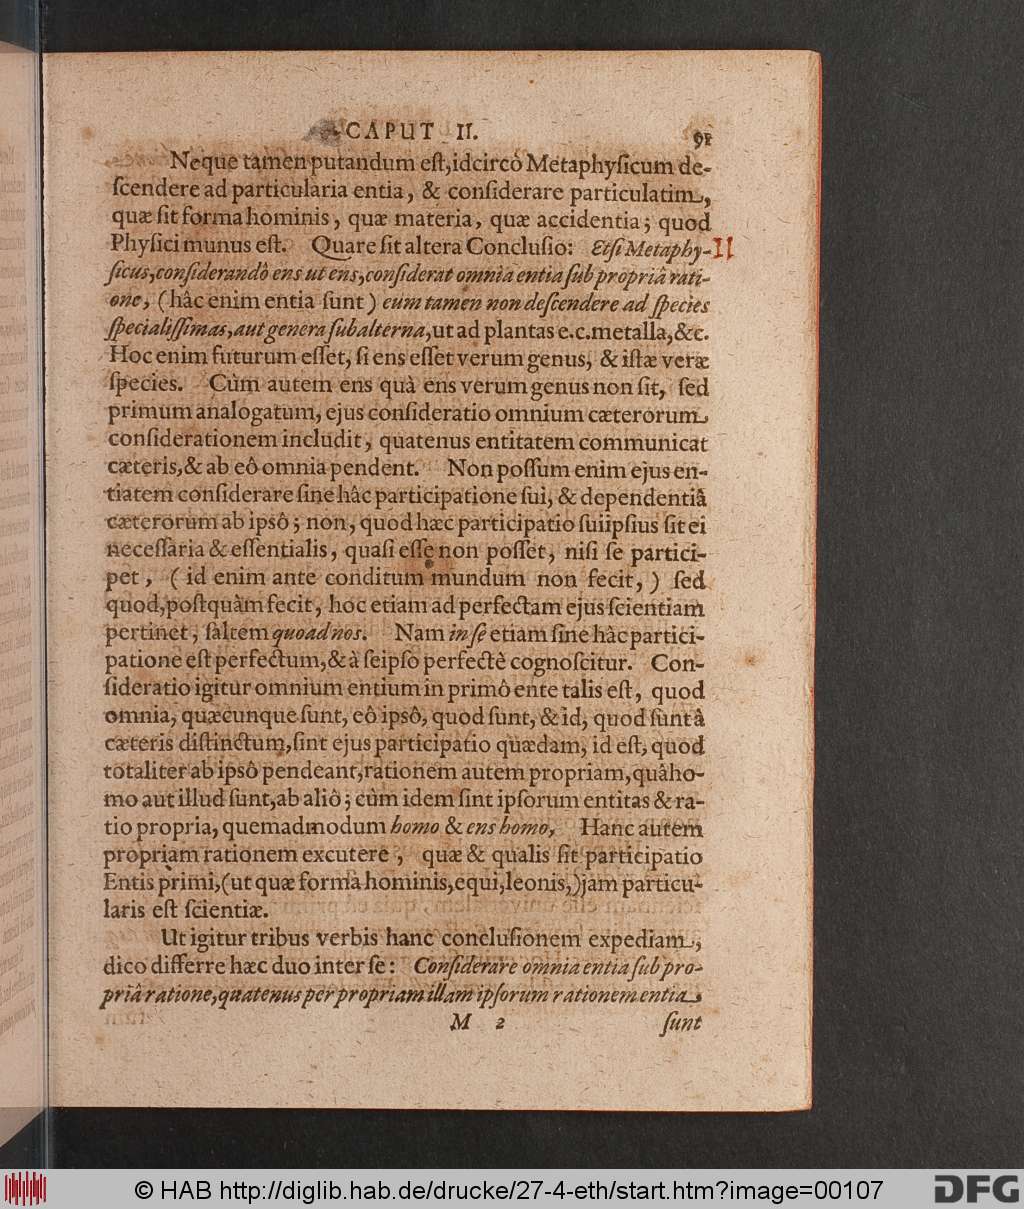 CAPUT II. 91
Neque tamen putandum eſt, idcircò Metaphyſicum de-
ſcendere ad particularia entia, & conſiderare particulatim,
quæ ſit forma hominis, quæ materia, quæ accidentia; quod
Phyſici munus eſt. Quare ſit altera Concluſio: Etſi Metaphy- II
ſicus, conſiderandô ens ut ens, conſiderat omnia entia ſub propriâ rati-
one, (hâc enim entia ſunt) eum tamen non deſcendere ad ſpecies
ſpecialiſſimas, aut genera ſubalterna, ut ad plantas e.c. metalla, &c.
Hoc enim futurum eſſet, ſi ens eſſet verum genus, & iſtæ veræ
ſpecies. Cùm autem ens quà ens verum genus non ſit, ſed
primum analogatum, ejus conſideratio omnium cæterorum
conſiderationem includit, quatenus entitatem communicat
cæteris, & ab eô omnia pendent. Non poſſum enim ejus en-
tiatem conſiderare ſine hâc participatione ſui, & dependentiâ
cæterorum ab ipsô; non, quod hæc participatio ſui ipſius ſit ei
neceſſaria & eſſentialis, quaſi eſſe non poſſet, niſi ſe partici-
pet, (id enim ante conditum mundum non fecit,) ſed
quod, poſtquàm fecit, hoc etiam ad perfectam ejus ſcientiam
pertinet, ſaltem quoad nos. Nam in ſe etiam ſine hâc partici-
patione eſt perfectum, & à ſeipſo perfectè cognoſcitur. Con-
ſideratio igitur omnium entium in primô ente talis eſt, quod
omnia, quæcunque ſunt, eô ipsô, quod ſunt, & id, quod ſunt â
cæteris diſtinctum, ſint ejus participatio quædam, id eſt, quod
totaliter ab ipsô pendeant, rationem autem propriam, quâ ho-
mo aut illud ſunt, ab aliô; cùm idem ſint ipſorum entitas & ra-
tio propria, quemadmodum homo & ens homo, Hanc autem
propriam rationem excutere, quæ & qualis ſit participatio
Entis primi, (ut quæ forma hominis, equi, leonis,) jam particu-
laris eſt ſcientiæ.
Ut igitur tribus verbis hanc concluſionem expediam,
dico differre hæc duo inter ſe: Conſiderare omnia entia ſub pro-
priâ ratione, quatenus per propriam illam ipſorum rationem entia
M 2 ſunt
© HAB http://diglib.hab.de/drucke/27-4-eth/start.htm?image=00107 DFG